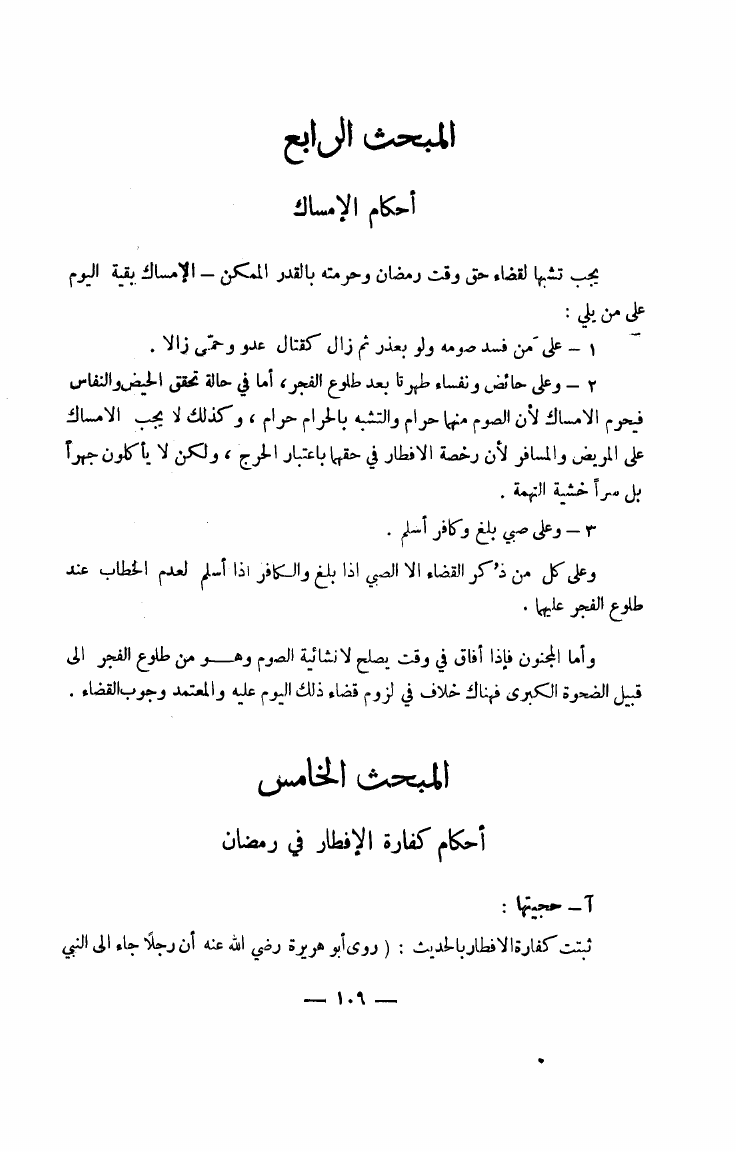 المبحث الرابع
أحكام الإمساك
يجب تشبها لقضاء حق وقت رمضان وحرمته بالقدر الممكن – الإمساك بقية اليوم
على من يلي :
١ – على مَن فسد صومه ولو بعذر ثم زال كقتال عدو وحمّى زالا .
٢ – وعلى حائض ونفساء طهرتا بعد طلوع الفجر، أما في حالة تحقق الحيض والنفاس
فيحرم الامساك لأن الصوم منها حرام والتشبه بالحرام حرام ، وكذلك لا يجب الامساك
على المريض والمسافر لأن رخصة الافطار في حقها باعتبار الحرج ، ولكن لا يأكلون جهراً
بل سراً خشية التهمة .
٣ – وعلى صبي بلغ وكافر أسلم .
وعلى كل من ذُكر القضاء الا الصبي اذا بلغ والكافر اذا أسلم لعدم الخطاب عند
طلوع الفجر عليها .
وأما المجنون فإذا أفاق في وقت يصلح لانشائية الصوم وهـو من طلوع الفجر الى
قبيل الضحوة الكبرى فهناك خلاف في لزوم قضاء ذلك اليوم عليه والمعتمد وجوب القضاء .
المبحث الخامس
أحكام كفارة الإفطار في رمضان
آ – حجيتها :
ثبتت كفارة الافطار بالحديث : ( روى أبو هريرة رضي الله عنه أن رجلًا جاء الى النبي
— ١٠٩ —